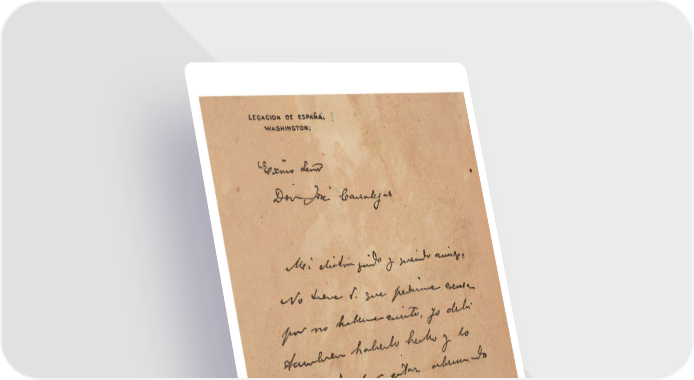 LEGACION DE ESPAÑA.
WASHINGTON.
Exmo Señor
Don José Canalejas
Mi distinguido y querido amigo,
No tiene V. que pedirme excusa
por no haberme escrito, yo debí
tambien haberlo hecho y lo
estar abrumado